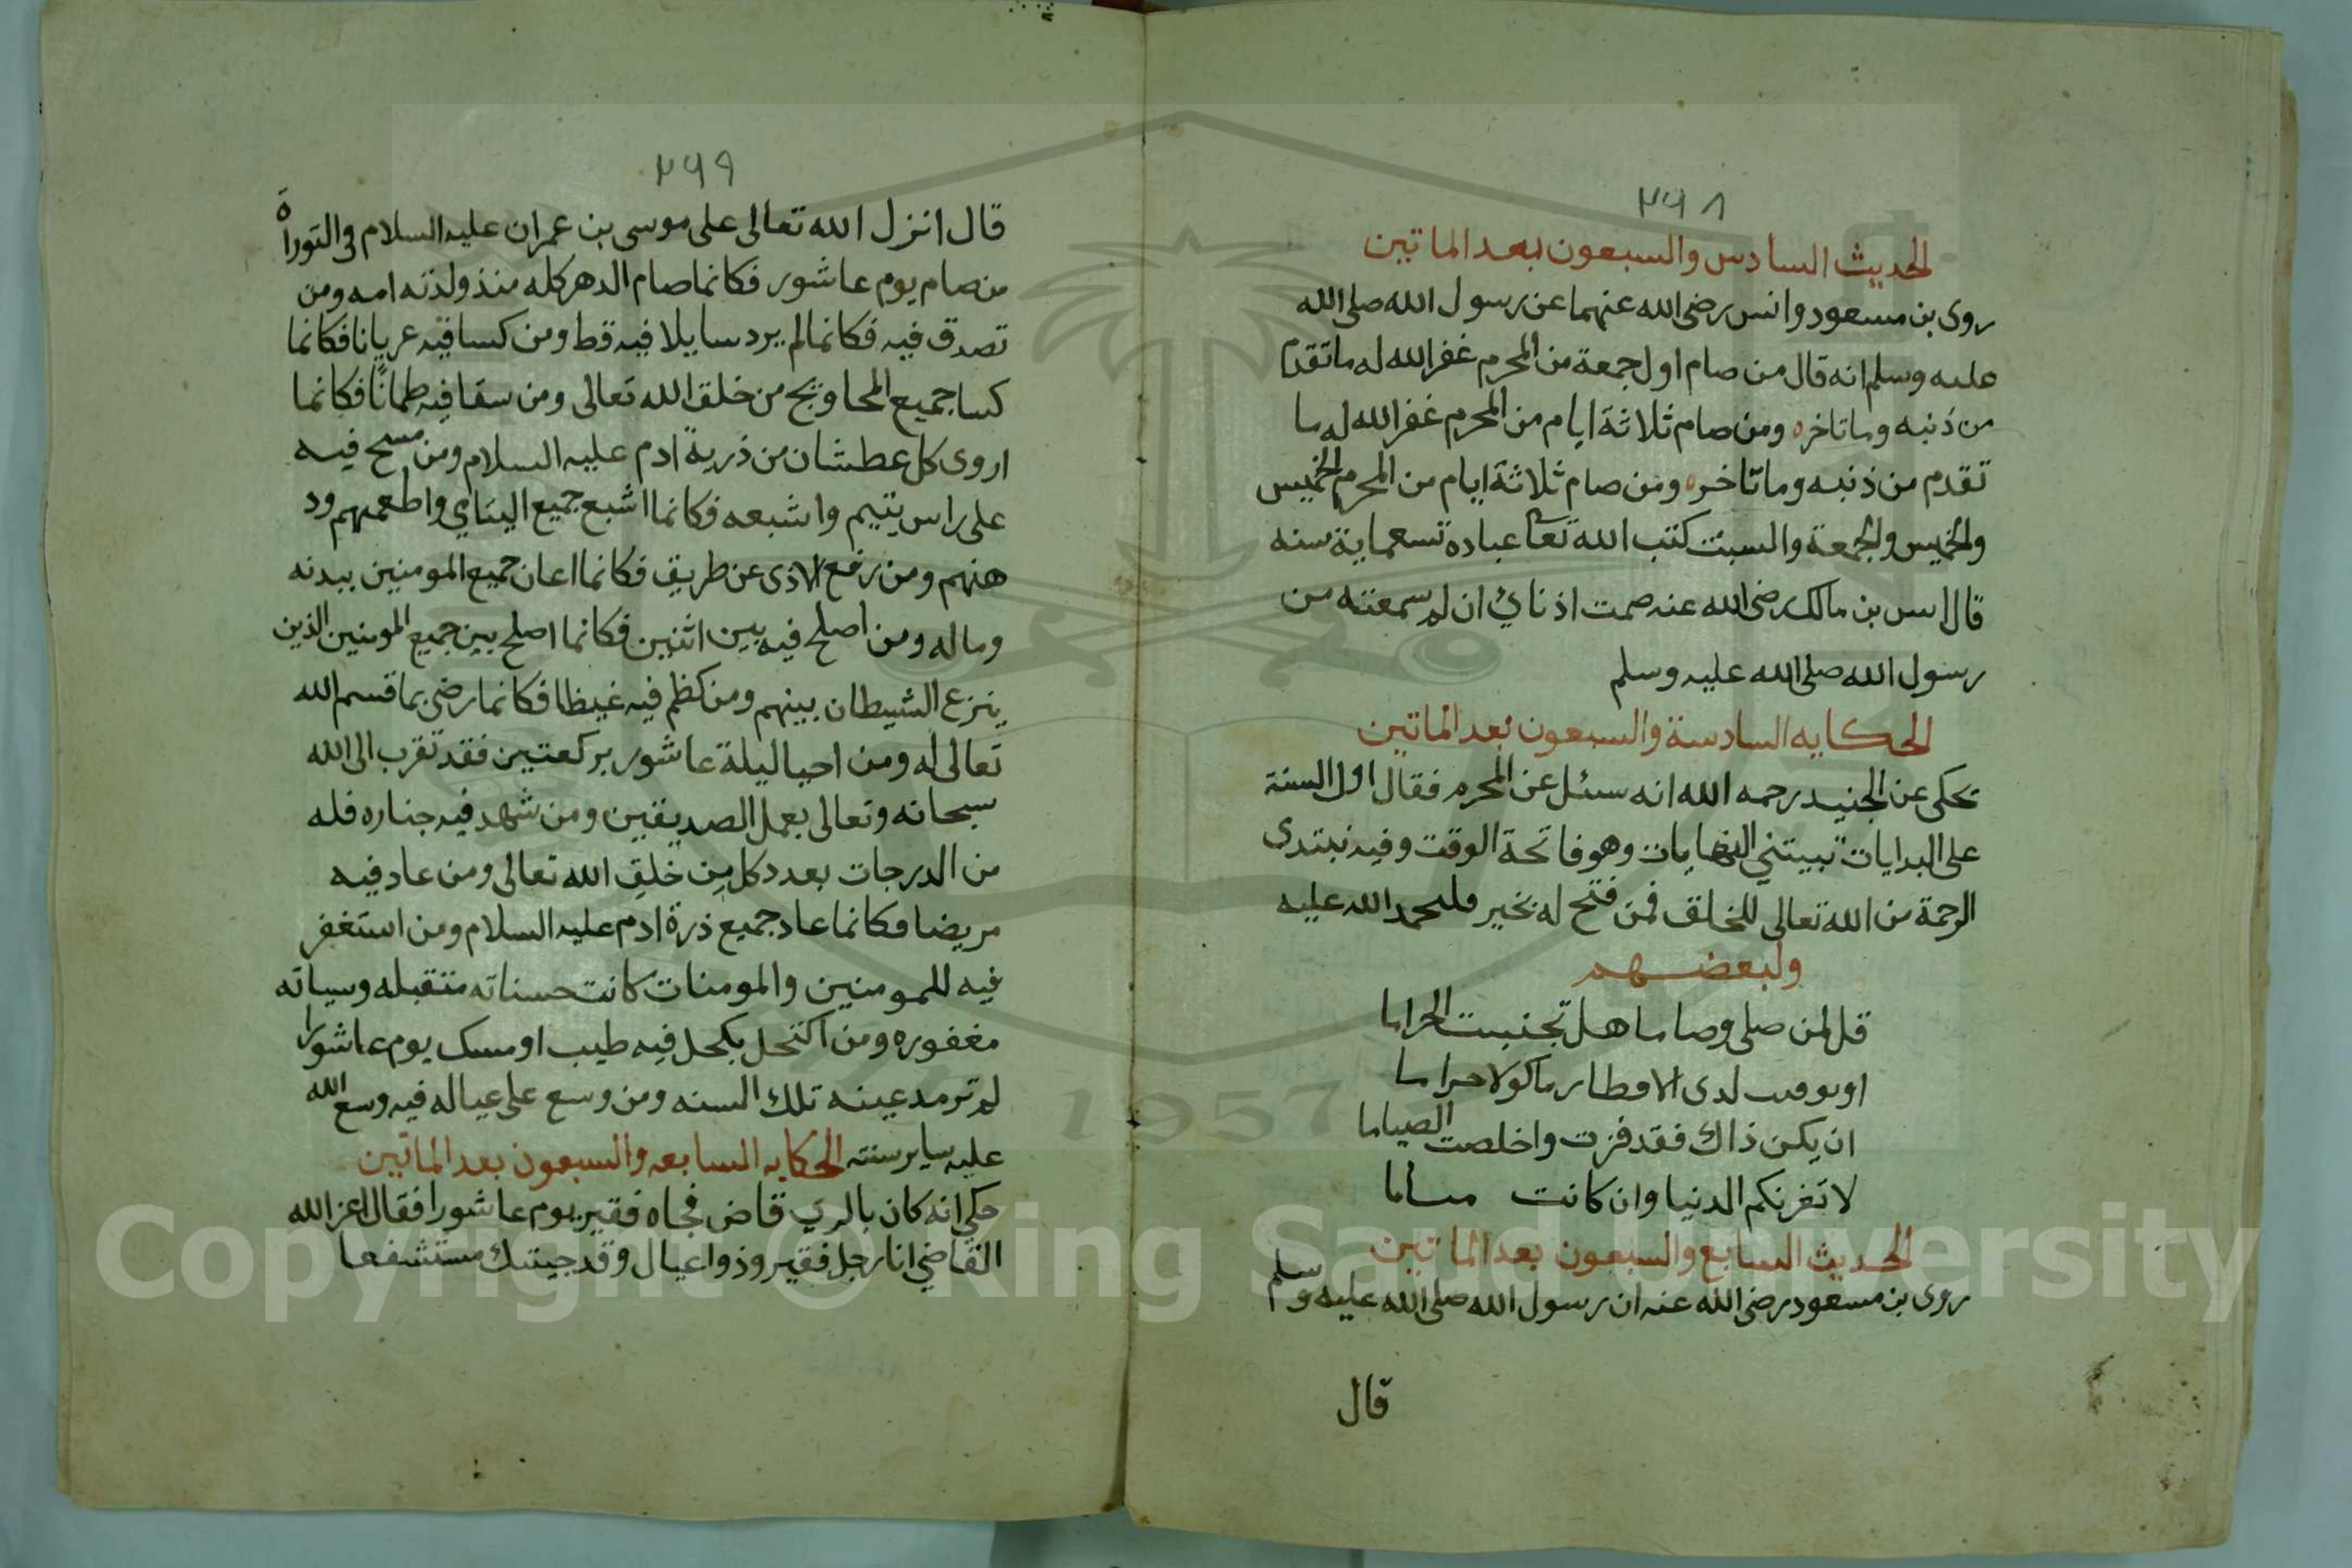 ٢٦٨
الحديث السادس والسبعون بعد الماتين
روى بن مسعود وانس رضى الله عنهما عن رسول الله صلى الله
عليه وسلم انه قال من صام اول جمعة من المحرم غفر الله له ما تقدم
من ذنبه وما تاخره ومن صام ثلاثة ايام من المحرم غفر الله له ما
تقدم من ذنبه وما تاخره ومن صام ثلاثة ايام من المحرم الخميس
والخميس والجمعة والسبت كتب الله تعا عباده تسعماية سنه
قال انس بن مالك رضى الله عنه صمت اذناي ان لم سمعته من
رسول الله صلى الله عليه وسلم
الحكايه السادسة والسبعون بعد الماتين
حكى عن الجنيد رحمه الله انه سئل عن المحرم فقال اول السنة
على البدايات تبيتني النهايات وهو فاتحة الوقت وفيه نبتدى
الرحمة من الله تعالى للخلق فمن فتح له بخير فليحمد الله عليه
ولبعضهم
قل لمن صلى وصاما هل تجنبت الحراما
او لدى الافطار ماكولا حراما
ان يكن ذاك فقد فزت واخلصت الصياما
لا تغرنكم الدنيا وان كانت مناما
الحديث السابع والسبعون بعد الماتين
روى بن مسعود رضى الله عنه ان رسول الله صلى الله عليه وسلم
قال
٢٦٩
قال انزل الله تعالى على موسى بن عمران عليه السلام فى التوراة
من صام يوم عاشور فكانما صام الدهر كله منذ ولدته امه ومن
تصدق فيه فكانما لم يرد سايلا فيه قط ومن كسا فيه عريانا فكانما
كسا جميع المحاويج من خلق الله تعالى ومن سقا فيه ظمانا فكانما
اروى كل عطشان من ذرية ادم عليه السلام ومن مسح فيه
على راس يتيم واشبعه فكانما اشبع جميع اليتامي واطعمهم ود
هنهم ومن رفع الاذى عن طريق فكانما اعان جميع المومنين ببدنه
وماله ومن اصلح فيه بين اثنين فكانما اصلح بين جميع المومنين الذين
ينزع الشيطان بينهم ومن كظم فيه غيظا فكانما رضى بما قسم الله
تعالى له ومن احيا ليلة عاشور بركعتين فقد تقرب الى الله
سبحانه وتعالى بعمل الصديقين ومن شهد فيه جنازه فله
من الدرجات بعدد كل من خلق الله تعالى ومن عاد فيه
مريضا فكانما عاد جميع ذرة ادم عليه السلام ومن استغفر
فيه للمومنين والمومنات كانت حسناته متقبله وسياته
مغفوره ومن اكتحل بكحل فيه طيب او مسك يوم عاشورا
لم ترمد عينه تلك السنه ومن وسع على عياله فيه وسع الله
عليه ساير سنته الحكايه السابعه والسبعون بعد الماتين
حكي انه كان بالري قاض فجاه فقير يوم عاشورا فقال اعز الله
القاضي انا رجل فقير وذوا عيال وقد جيتك مستشفعا
Copyright © King Saud University
1957